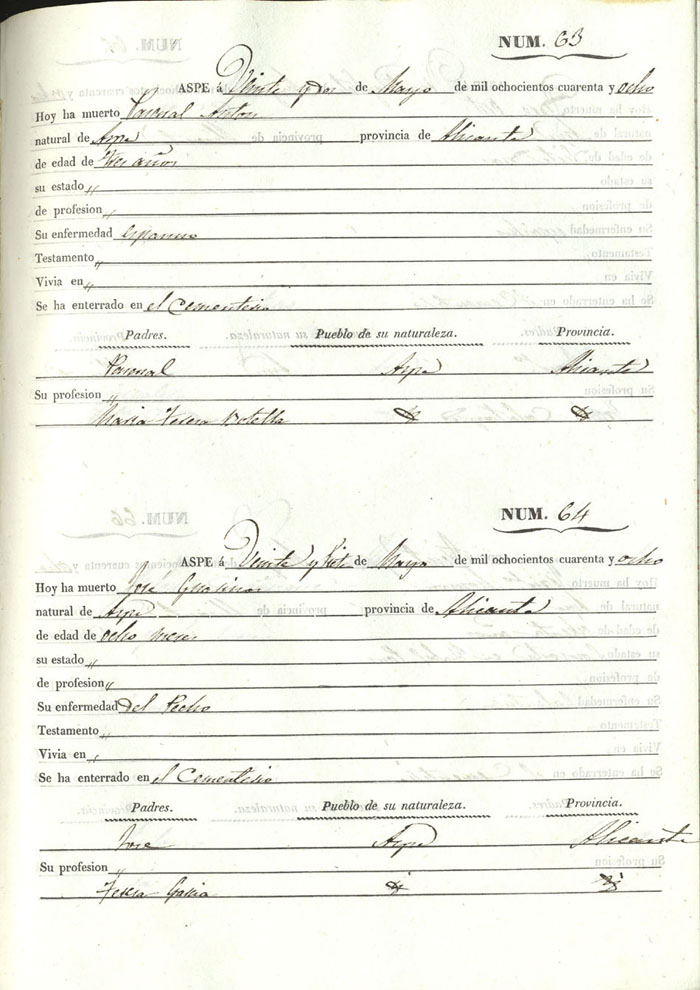 NUM. 63
ASPE á Veinte y dos de Mayo de mil ochocientos cuarenta y ocho
Hoy ha muerto Pascual Anton
natural de Aspe provincia de Alicante
de edad de tres años
su estado „
de profesion „
Su enfermedad
Testamento „
Vivia en „
Se ha enterrado en el Cementerio
Padres. Pueblo de su naturaleza. Provincia.
Pascual Aspe Alicante
Su profesion „
Maria Teresa Botella id id
NUM. 64
ASPE á Veinte y siete de Mayo de mil ochocientos cuarenta y ocho
Hoy ha muerto José
natural de Aspe provincia de Alicante
de edad de ocho meses
su estado „
de profesion „
Su enfermedad del Pecho
Testamento „
Vivia en „
Se ha enterrado en el Cementerio
Padres. Pueblo de su naturaleza. Provincia.
José Aspe Alicante
Su profesion „
Teresa id id